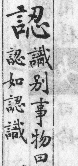 認識別事物曰
認如認識